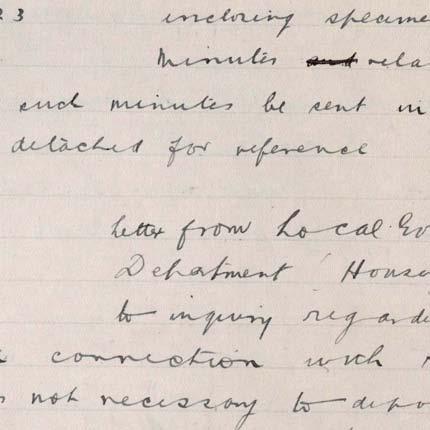 23 inclosing specime
Minutes and rela
such minutes be sent in
detached for reference
Letter from Local Go
Department Housi
to inquiry regardi
connection with
s not necessary to depo